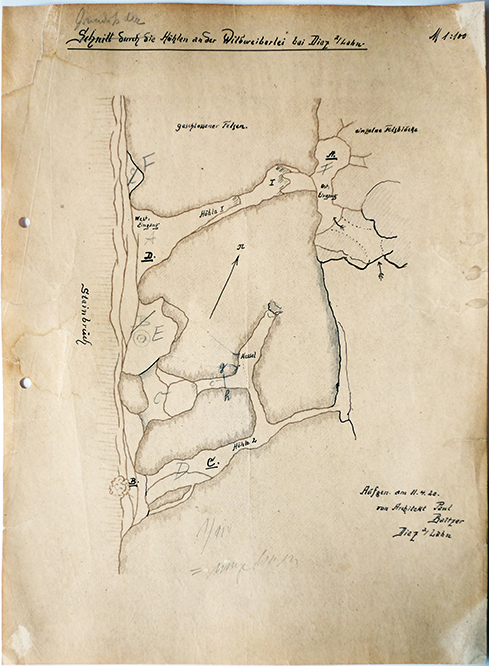 Grundriß der
Schnitt durch die Höhlen an der Wildweiberlei bei Diez a/Lahn.
M 1:100
geschlossener Felsen.
einzelne Felsblöcke
F
A.
F
I
Ost.
Eingang
Höhle I
West.
Eingang
D.
n
Steinbruch
E
Kessel
g
c
h
Höhle 2
C.
D
B.
Aufgen. am 11.4.20.
von Architekt Paul
Diez a/Lahn